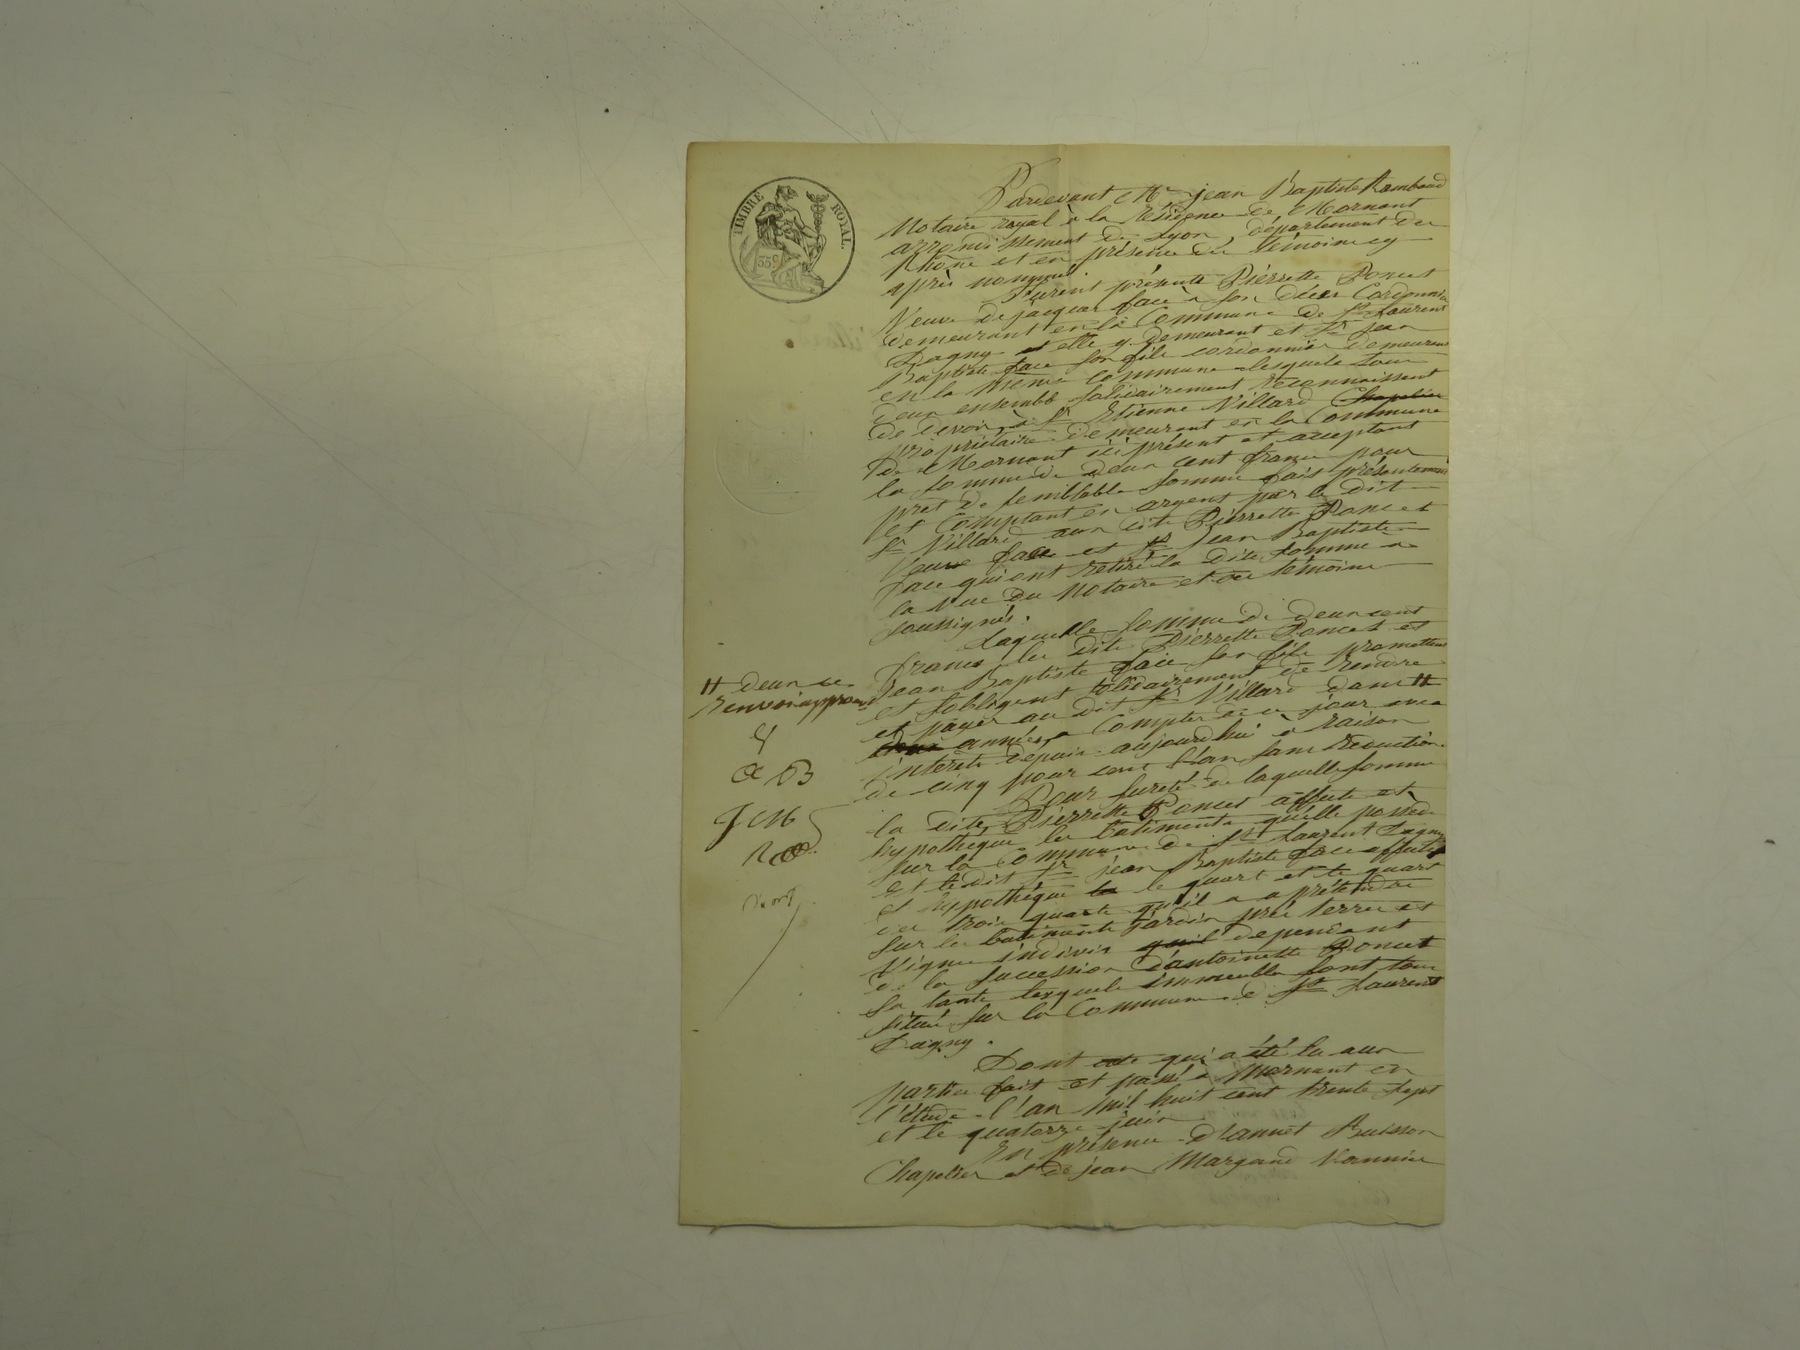 TIMBRE ROYAL.
35c
Pardevant Me jean Baptiste Rambaud
Notaire royal à la résidence de Mornant
arrondissement de Lyon, département du
Rhône et en présence des témoins cy
après nommés.
Furent présents Pierrette Poncet
Veuve de jacques face à son décès Cordonnier
demeurant en la Commune de St Laurent
Dagny et elle y demeurant et Sr Jean
Baptiste face son fils cordonnier demeurant
en la même commune lesquels tous
deux ensemble solidairement reconnaissent
de devoir à Sr Etienne Villard Chapelier
propriétaire demeurant en la Commune
de Mornant ici présent et acceptant
la somme de deux cent francs pour
pret de semblable somme fais présentement
et Comptant en argent par le dit
Sr Villard aux dits Pierrette Poncet
Veuve face et Sr Jean Baptiste
face qui ont retiré la dite somme à
la vue du Notaire et des témoins
soussignés.
Laquelle somme de deux cent
francs les dits Pierrette Poncet et
Jean Baptiste face son fils promettent
et sobligent solidairement de rendre
et payer au dit Sr Villard dans #
années, a Compter de ce jour avec
interets depuis aujourdhui à raison
de cinq pour cent l'an sans réduction.
Pour sureté de laquelle somme
la dite Pierrette Poncet affecte et
hypothèque les batiments qu'elle possede
sur la Commune de St Laurent Dagny
et le dit Sr jean Baptiste face affecte
et hypothèque le quart et le quart
des trois quarts qu'il a a prétendre
sur les batiments jardin prés terres et
Vignes indivis quil dependant
de la succession d'antoinette Poncet
sa tante lesquels immeubles sont tous
situés sur la Commune de St Laurent
Dagny.
Dont acte qui a été lu aux
parties fait et passé à Mornant en
l'étude l'an mil huit cent trente sept
et le quatorze juin
En présence d'annet Buisson
Chapelier et de jean Margand Vannier
# deux ce
renvoi approuvé
JCM